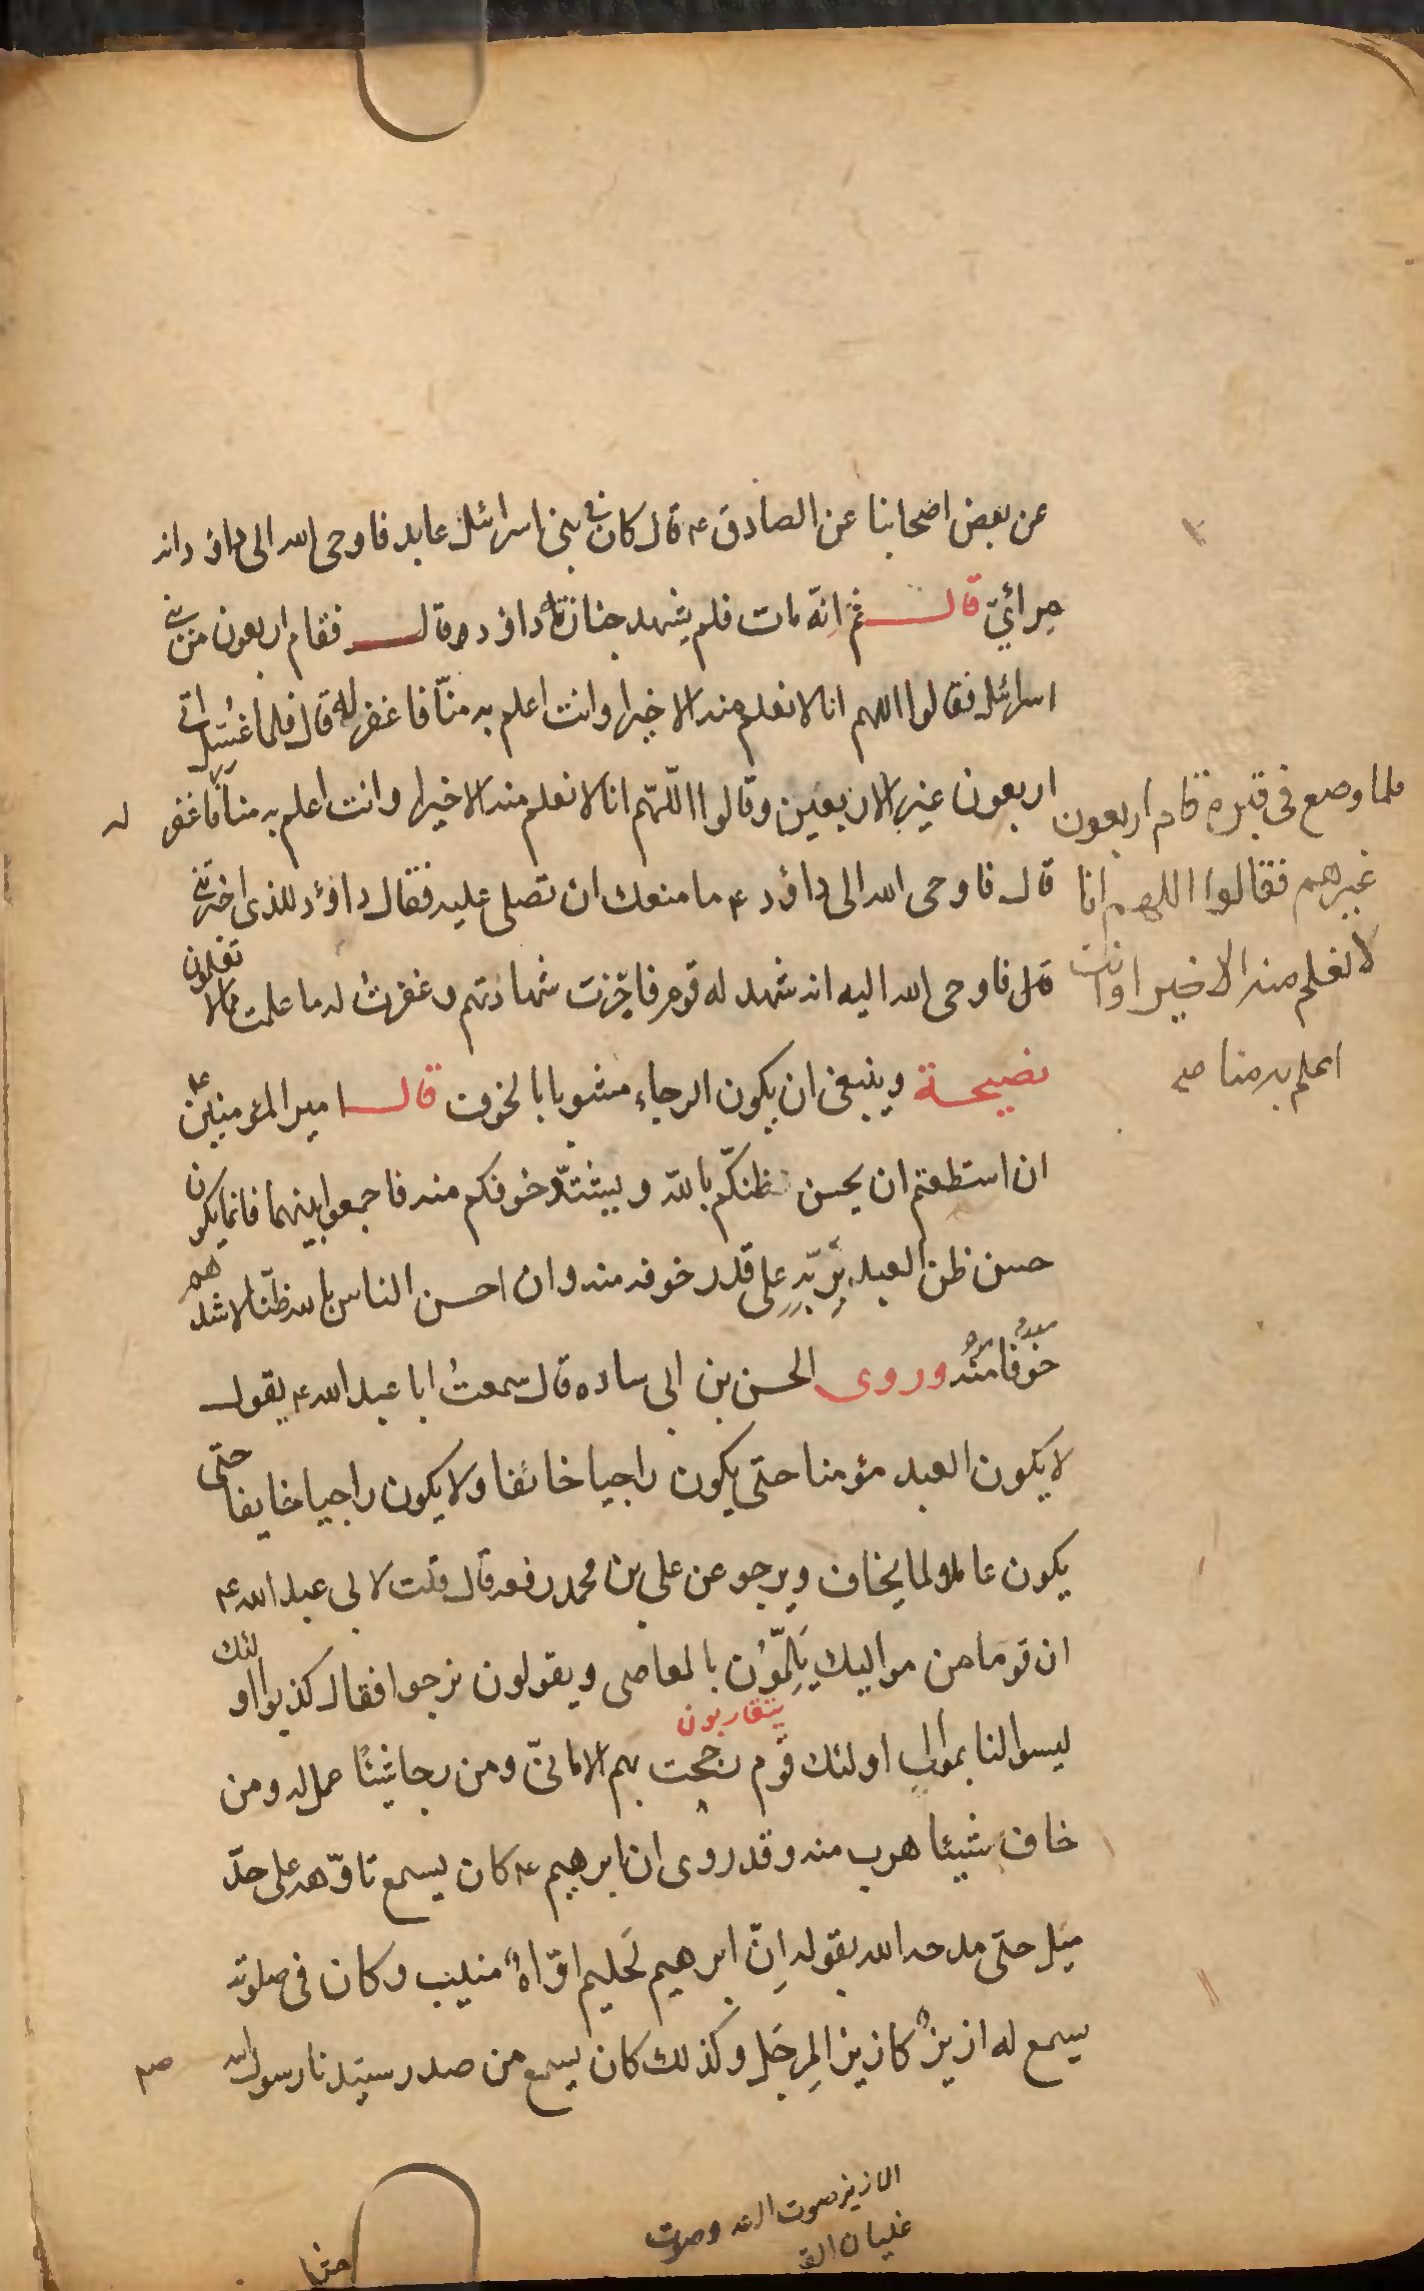 عن بعض اصحابنا عن الصادق ع قال كان في بني اسرائيل عابد فاوحى الله الى داؤد انه
مرائيّ قال ثم انّه مات فلم يشهد جنازته داؤد ع قال فقام اربعون من بني
اسرائيل فقالوا اللهم انا لا نعلم منه الا خيرا وانت اعلم به منّا فاغفر له قال فلما غُسّل اتى
اربعون غير الاربعين وقالوا اللّهم انا لا نعلم منه الا خيرا وانت اعلم به منا فاغفر له
فلما وضع في قبره قام اربعون
غيرهم فقالوا اللهم انا
لا نعلم منه الا خيرا وانت
اعلم به منا صح
قال فاوحى الله الى داؤد ع ما منعك ان تصلى عليه فقال داؤد للذى اخبرتني
قال فاوحى الله اليه انه شهد له قوم فاجزت شهادتهم وغفرت له ما علمت مالا تعلمون
نصيحة وينبغى ان يكون الرجاء مشوبا بالخوف قال امير المؤمنين ع
ان استطعتم ان يحسن ظنكّم بالله ويشتدّ خوفكم منه فاجمعوا بينهما فانما يكون
حسن ظن العبد بربّه على قدر خوفه منه وان احسن الناس بالله ظنّا لاشدهم
خوفا منه وروى الحسن بن ابى ساره قال سمعت ابا عبد الله ع يقول
لا يكون العبد مؤمنا حتى يكون راجيا خائفا ولا يكون راجيا خايفا حتّى
يكون عاملا لما يخاف ويرجو عن على بن محمد رفعه قال قلت لابى عبد الله ع
ان قوما من مواليك يَلِمّوُن بالمعاصى ويقولون نرجوا فقال كذبوا اولئك
ليسوا لنا بموالٍ اولئك قوم رجحت بهم الامانىّ ومن رجا شيئًا عمل له ومن
يتقاربون
خاف شيئا هرب منه وقد روى ان ابرهيم ع كان يسمع تاوّهه على حدّ
ميل حتى مدحه الله بقوله اِنّ ابرهيم لَحليم اوّاهٌ منيب وكان فى صلوته
يسمع له ازيزٌ كازيز المِرجَل وكذلك كان يسمع من صدر سيّدنا رسول الله صم
الازيز صوت الرعد وصوت
غليان القدر